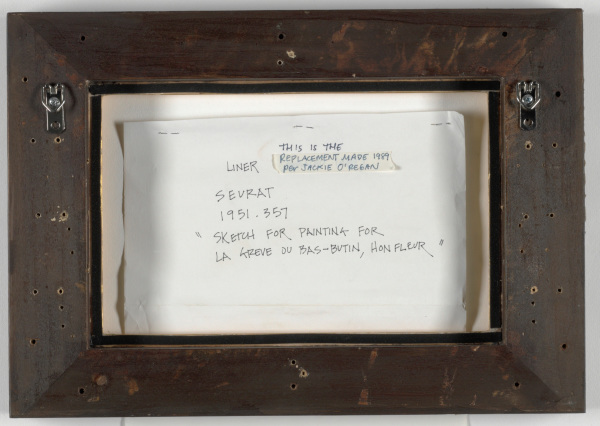 THIS IS THE
LINER REPLACEMENT MADE 1989
PER JACKIE O'REGAN
SEURAT
1951.357
" SKETCH FOR PAINTING FOR
LA GREVE DU BAS-BUTIN, HONFLEUR "